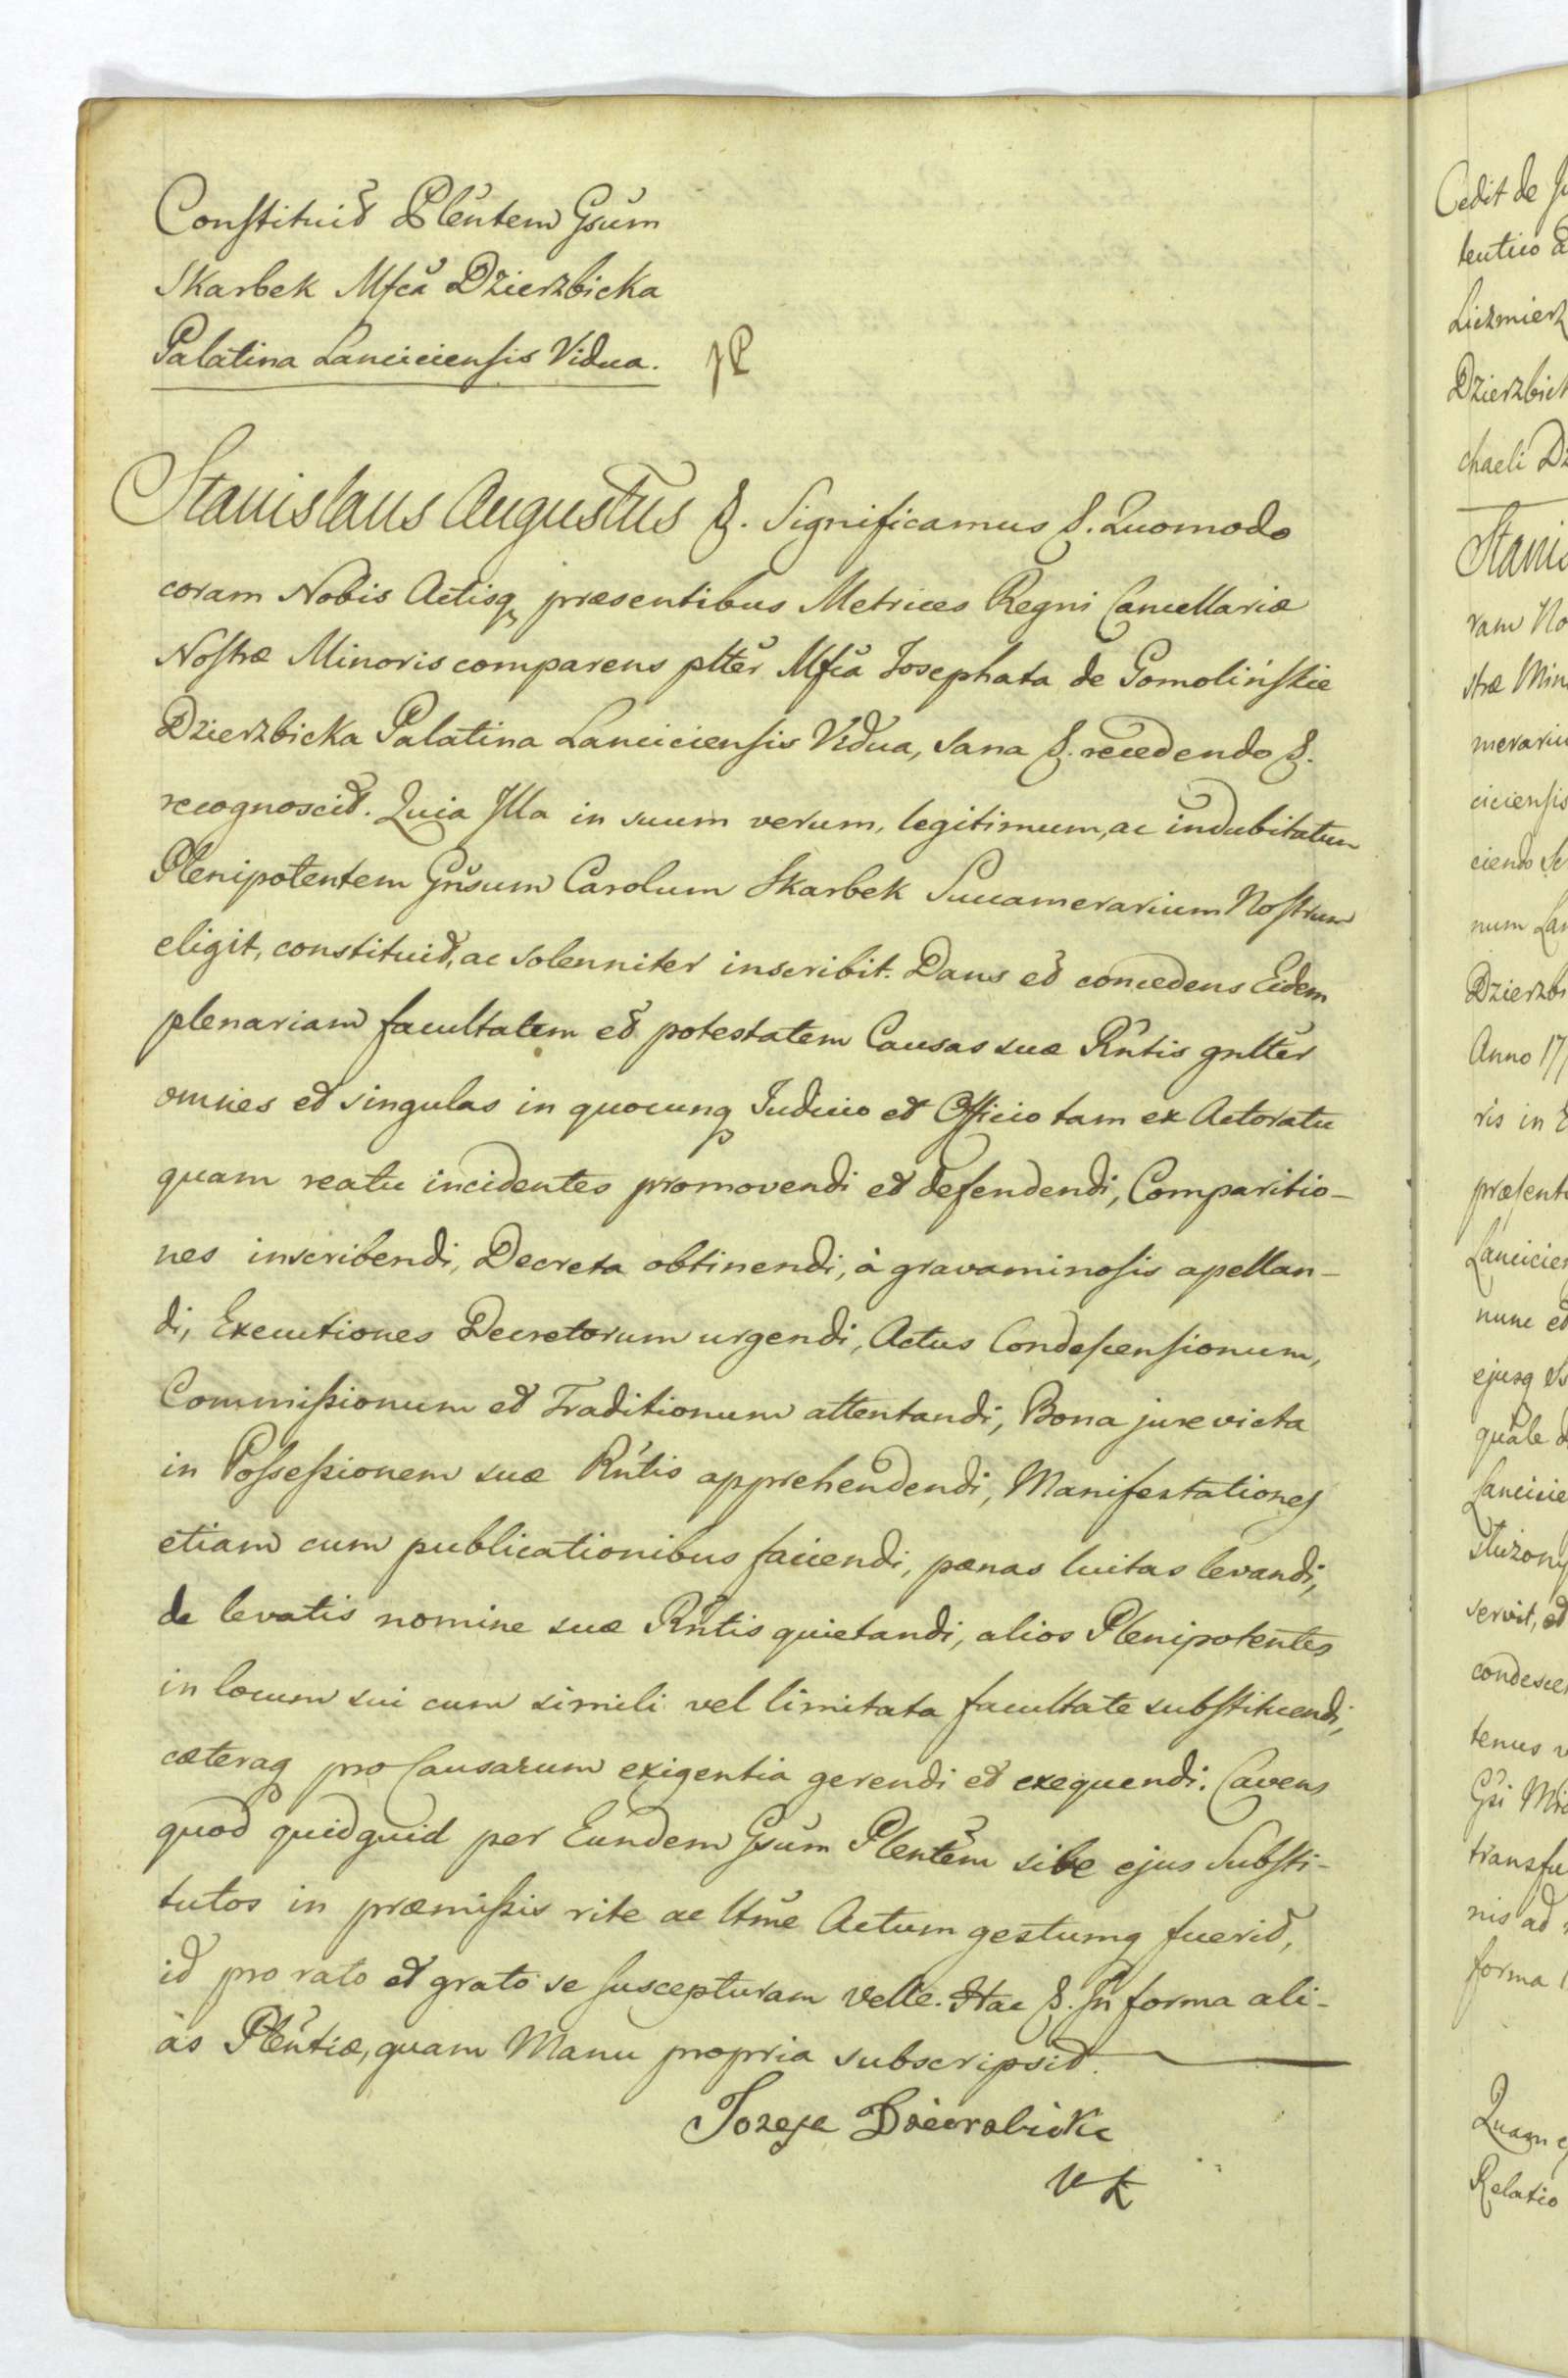 Constituit Plentem Gsum
Skarbek Mfca Dzierzbicka
Palatina Lanciciensis Vidua.
Stanislaus Augustus &. Significamus &. Quomodo
coram Nobis Actisq præsentibus Metrices Regni Cancellariæ
Nostræ Minoris comparens ptter Mfca Josephata de Gomolińskie
Dzierzbicka Palatina Lanciciensis Vidua, sana &. recedendo &.
recognoscit. Quia Illa in suum verum, legitimum, ac indubitatum
Plenipotentem Gnsum Carolum Skarbek Succamerarium Nostrum
eligit, constituit, ac solenniter inscribit. Dans et concedens Eidem
plenariam facultatem et potestatem Causas suæ Rntis gnltter
omnes et singulas in quocunq Judicio et Officio tam ex Actoratu
quam reatu incidentes promovendi et defendendi, Comparitio-
nes inscribendi, Decreta obtinendi, à gravaminosis apellan-
di, Executiones Decretorum urgendi, Actus Condescensionum,
Commissionum et Traditionum attentandi, Bona jure victa
in Possessionem suæ Rntis apprehendendi, Manifestationes
etiam cum publicationibus faciendi, pænas luitas levandi,
de levatis nomine suæ Rntis quietandi, alios Plenipotentes
in locum sui cum simili vel limitata facultate substituendi,
cæteraq pro Causarum exigentia gerendi et exequendi. Cavens
quod quidquid per Eundem Gsum Plentem sive ejus Substi-
tutos in præmissis rite ac ltme Actum gestumq fuerit,
id pro rato et grato se suscepturam velle. Hac &. In forma ali-
às Plentiæ, quam Manu propria subscripsit.
Cedit de
Liczmierz
Dzierzbick
chaeli Dz
Stanis
ram No
stræ Min
merariu
ciciensis
num Lan
Dzierzbi
Anno 17
ris in
præsent
Lancicien
nunc et
ejusq
quale d
Lancicie
servit, et
condescen
tenus v
Gsi Mic
transfu
nis ad
forma
Quam
Relatio